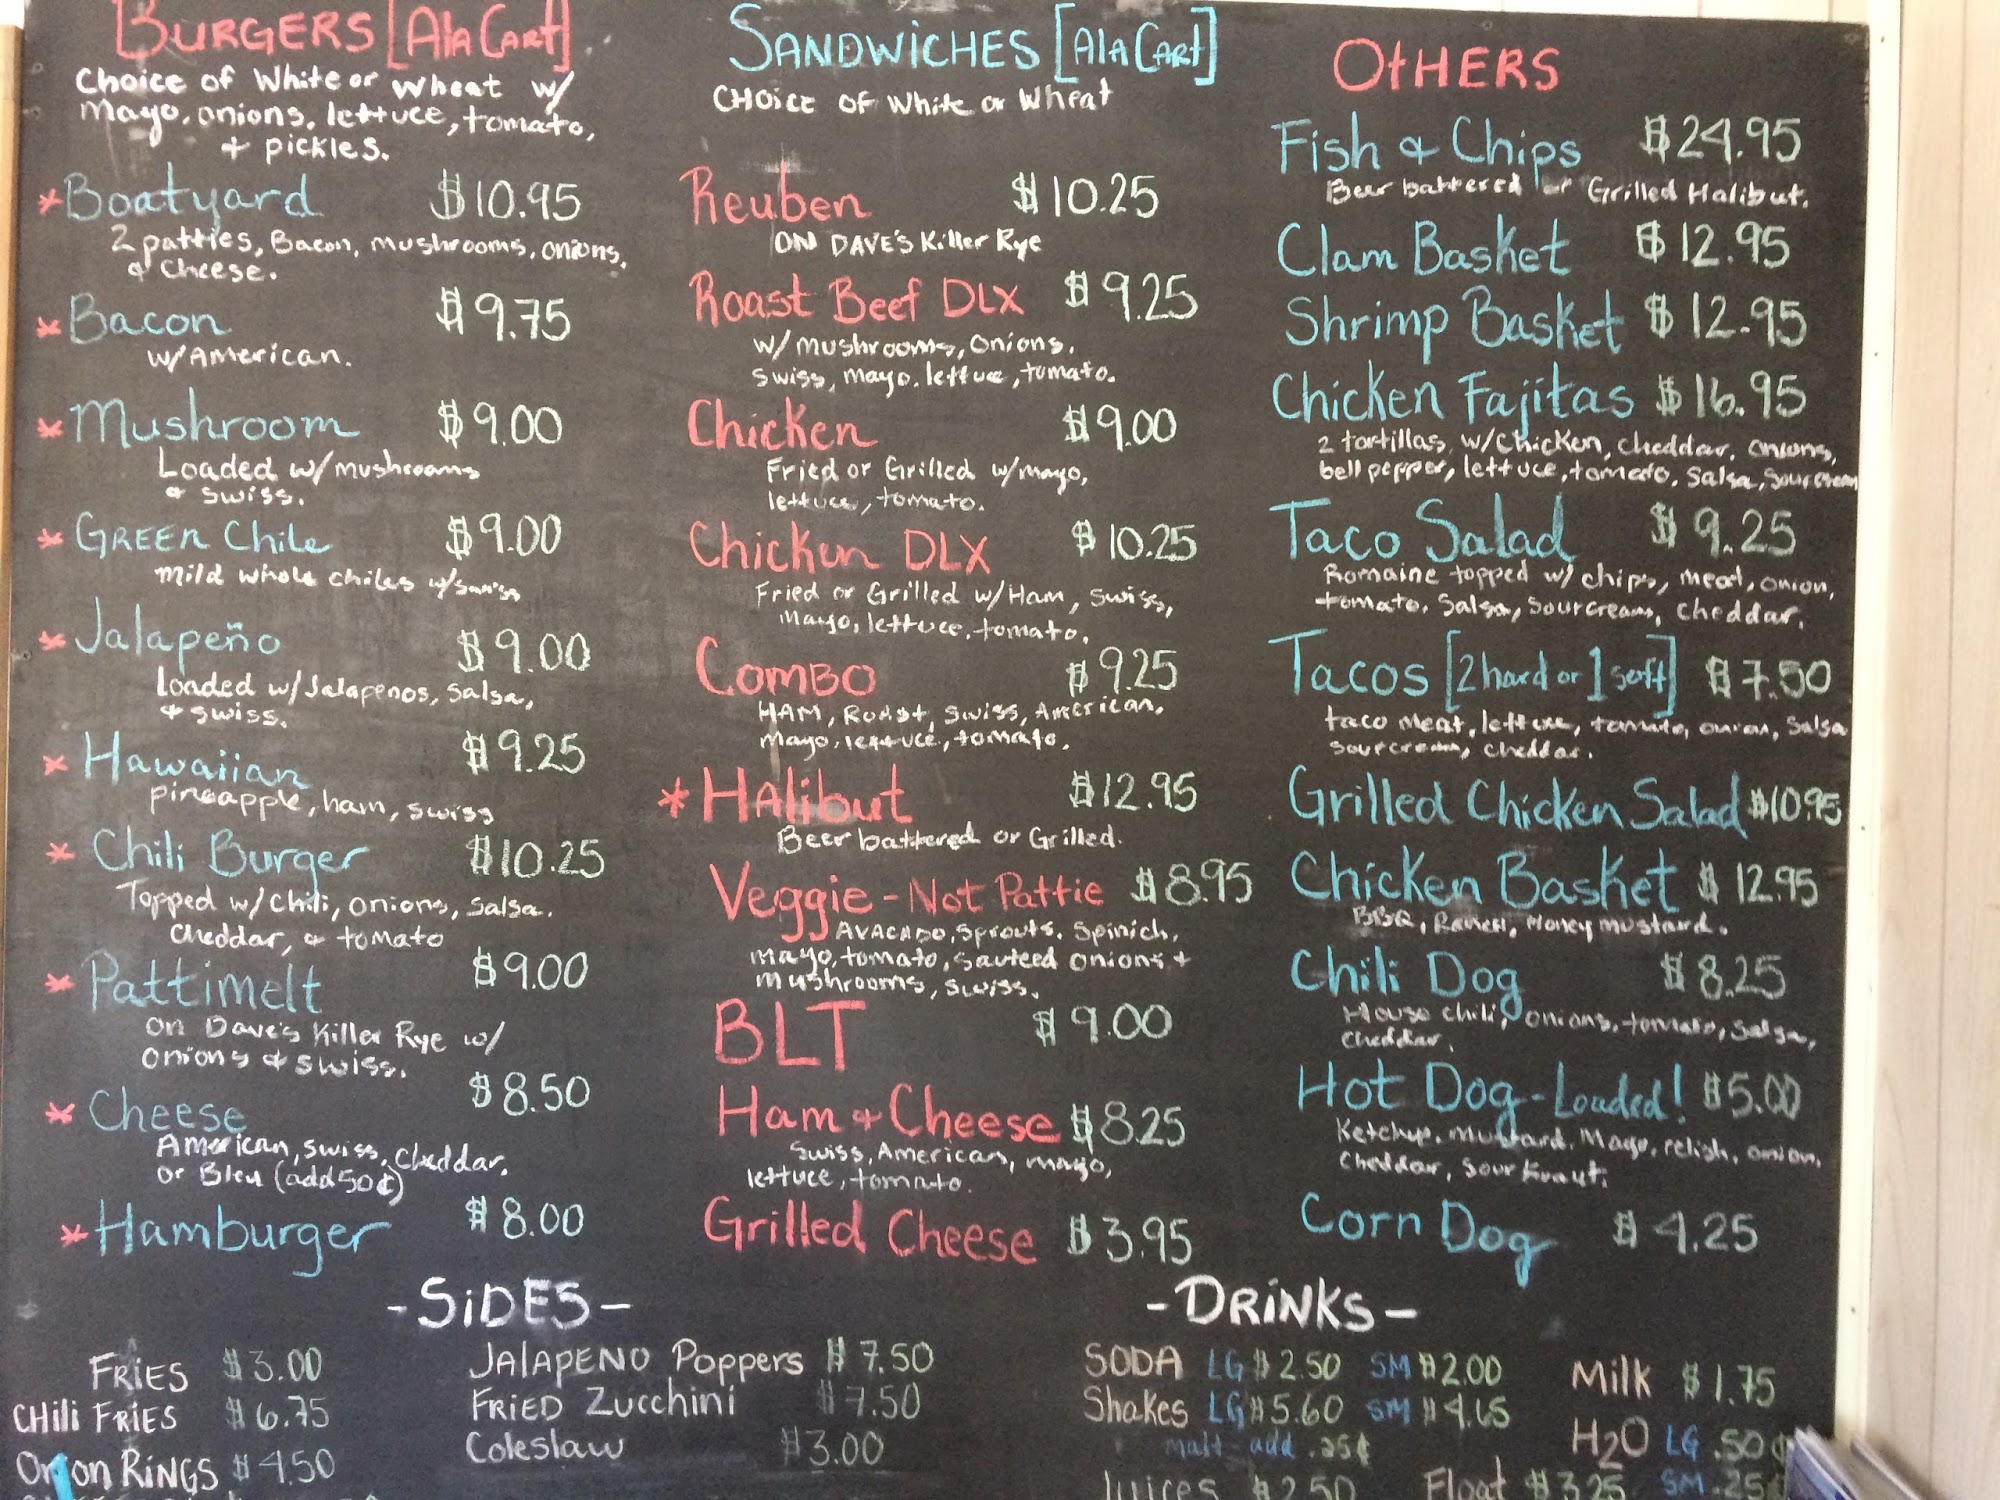 BURGERS [AlaCart]
Choice of White or Wheat w/
Mayo, onions, lettuce, tomato,
+ pickles.
*Boatyard $10.95
2 patties, Bacon, mushrooms, onions,
& Cheese.
*Bacon $9.75
w/American.
*Mushroom $9.00
Loaded w/mushrooms
& swiss.
*GREEN Chile $9.00
mild whole chiles w/swiss
*Jalapeño $9.00
Loaded w/Jalapenos, salsa,
& swiss.
*Hawaiian $9.25
pineapple, ham, swiss
*Chili Burger $10.25
Topped w/Chili, onions, salsa.
Cheddar, & tomato
*Pattimelt $9.00
on Dave's Killer Rye w/
onions & swiss.
*Cheese $8.50
American, swiss, cheddar.
or Bleu (add 50¢)
*Hamburger $8.00
SANDWICHES [AlaCart]
CHOICE OF White or Wheat
Reuben $10.25
ON DAVE'S Killer Rye
Roast Beef DLX $9.25
w/mushrooms, Onions.
swiss, mayo. lettuce, tomato.
Chicken $9.00
Fried or Grilled w/mayo,
lettuce, tomato.
Chickun DLX $10.25
Fried or Grilled w/Ham, swiss,
Mayo, lettuce, tomato.
COMBO $9.25
HAM, Roast, swiss, American,
Mayo, lettuce, tomato.
*HALibut $12.95
Beer battered or Grilled.
Veggie - Not Pattie $8.95
AVACADO, Sprouts. Spinich,
mayo, tomato, sauteed onions +
mushrooms, swiss.
BLT $9.00
Ham & Cheese $8.25
Swiss, American, mayo,
lettuce, tomato.
Grilled Cheese $3.95
OtHERS
Fish & Chips $24.95
Beer battered or Grilled Halibut.
Clam Basket $12.95
Shrimp Basket $12.95
Chicken Fajitas $16.95
2 tortillas w/chicken, cheddar, onions,
bell pepper, lettuce, tomato, salsa, sour cream
Taco Salad $9.25
Romaine topped w/ chips, meat, onion,
tomato, Salsa, sourcream, cheddar.
Tacos [2 hard or 1 soft] $7.50
taco meat, lettuce, tomato, onion, salsa
sourcream, cheddar.
Grilled Chicken Salad $10.95
Chicken Basket $12.95
BBQ, Ranch, Honey mustard.
Chili Dog $8.25
House chili, onions, tomato, salsa,
cheddar.
Hot Dog - Loaded! $5.00
Ketchup, mustard, Mayo, relish, onion.
Cheddar, Sour Kraut.
Corn Dog $4.25
-SiDES-
FRiES $3.00
CHili FRiES $6.75
Onion RiNGS $4.50
JAlAPENO Poppers $7.50
FRiED Zucchini $7.50
Coleslaw $3.00
-DRiNKS-
SODA LG $2.50 SM $2.00
Shakes LG $5.60 SM $4.65
malt - add .25¢
Juices $2.50 Float $3.25
Milk $1.75
H2O LG .50¢
SM .25¢